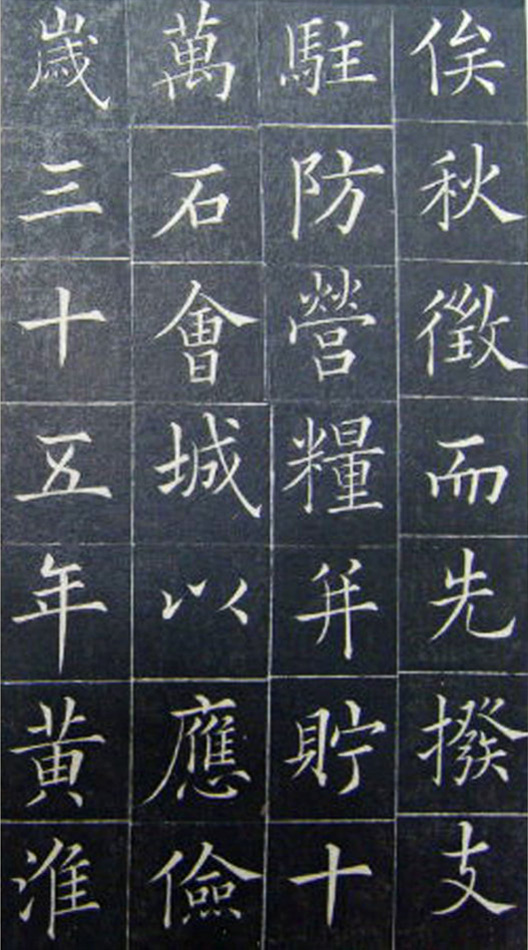 俟秋徵而先撥支
駐防營糧并貯十
萬石會城以應儉
歲三十五年黃淮